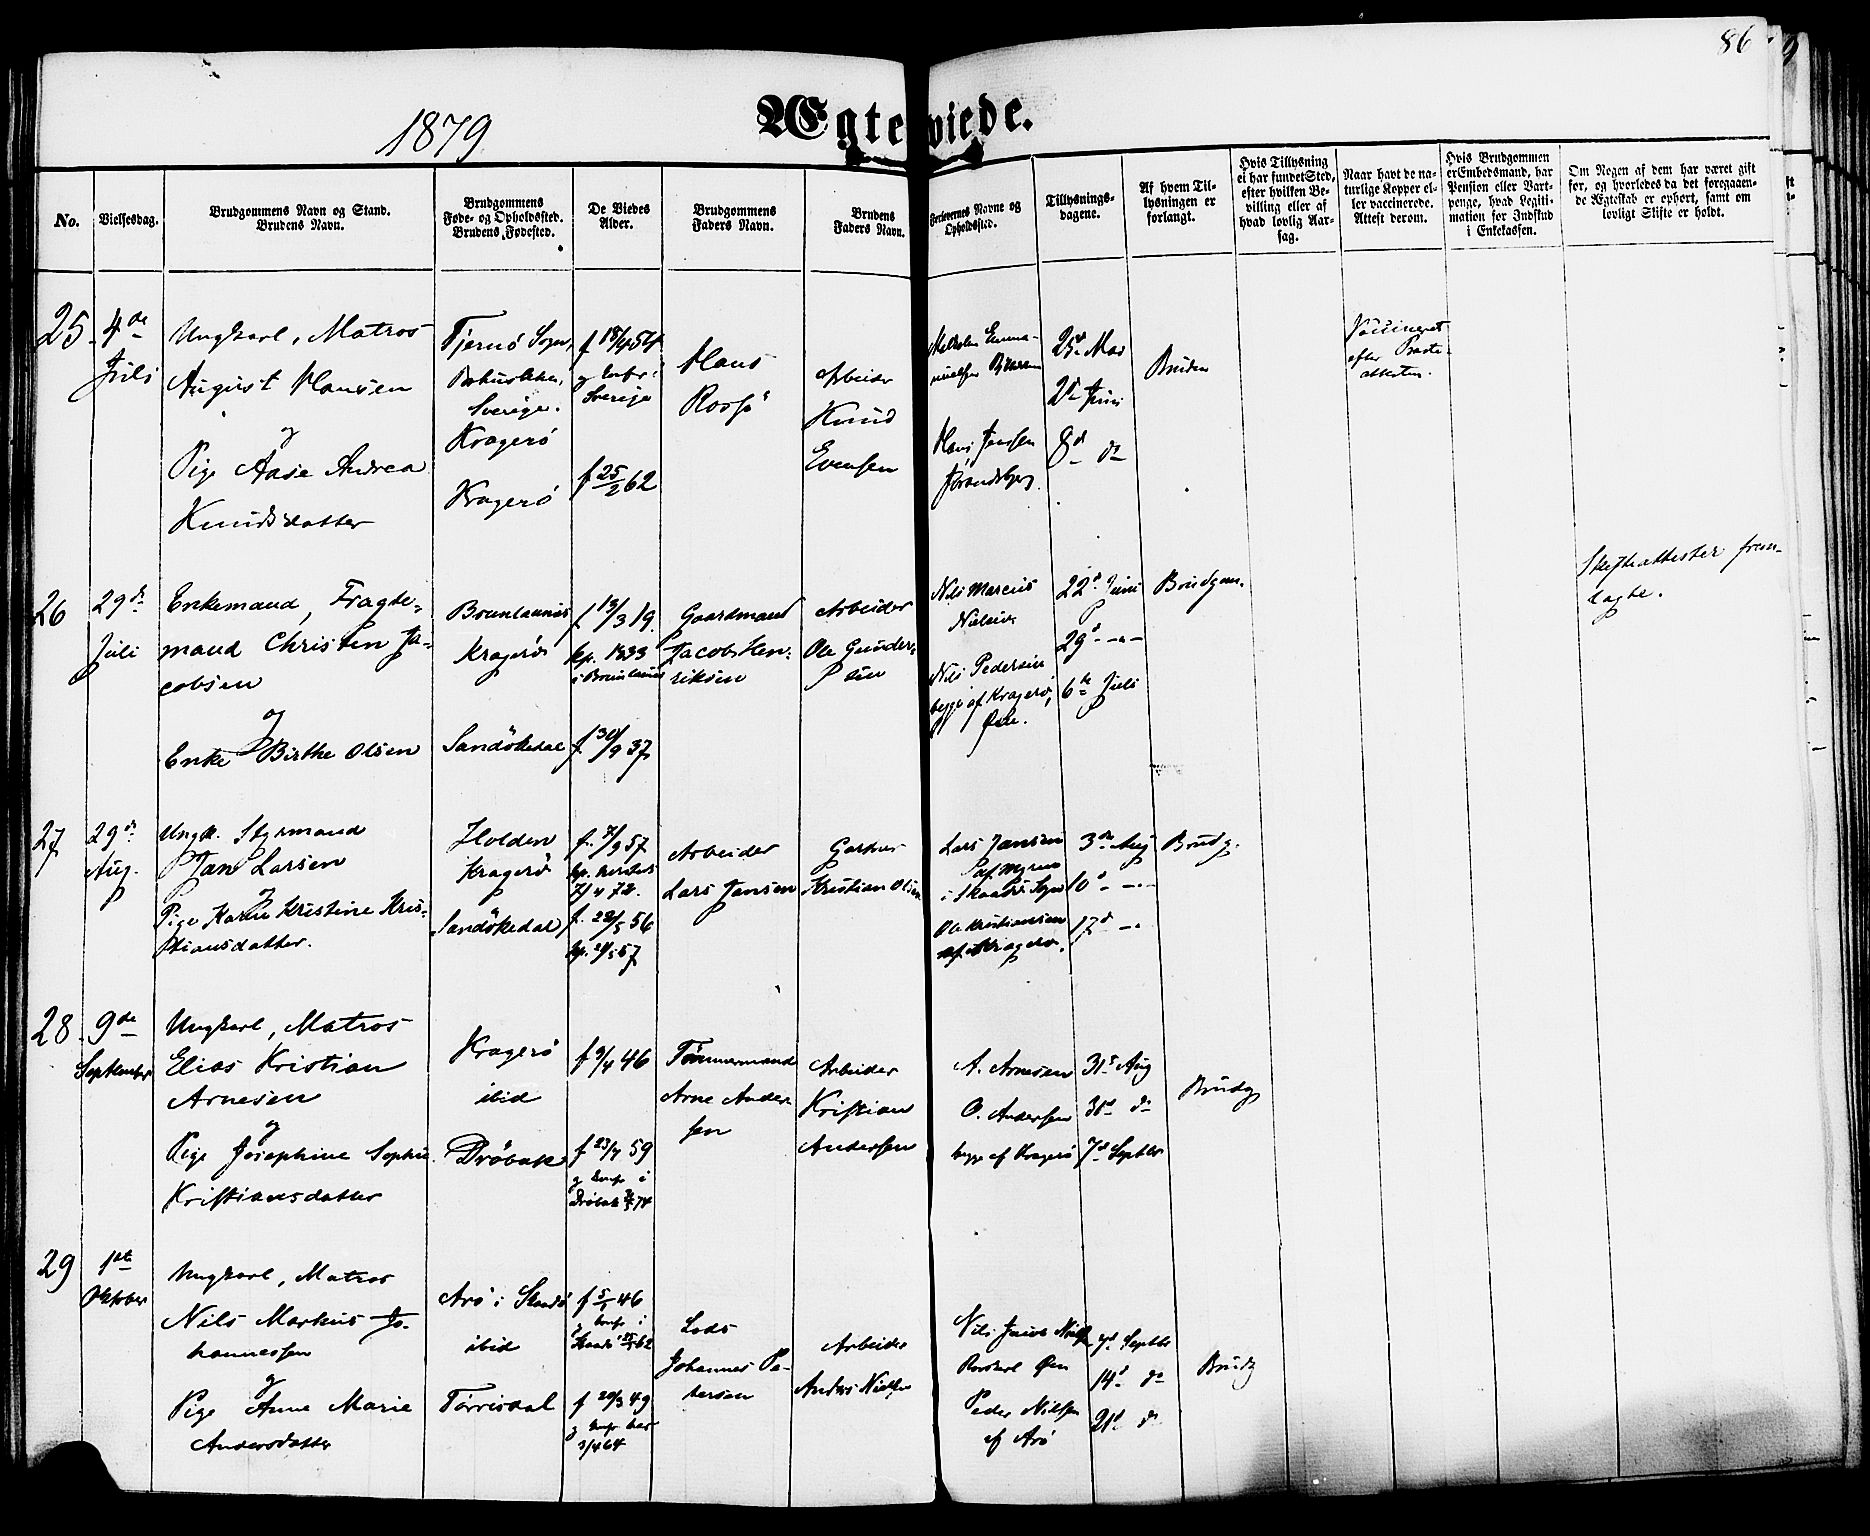 86
1879
Ægteviede.
No.
Vielsesdag.
Brudgommens Navn og Stand.
Brudens Navn.
Brudgommens
Føde- og Opholdssted.
Brudens Fødested.
De Viedes
Alder.
Brudgommens
Faders Navn.
Brudens
Faders Navn.
Forlovernes Navne og
Opholdssted.
Tillysnings-
dagene.
Af hvem Til-
lysningen er
forlangt.
Hvis Tillysning
ei har fundet Sted,
efter hvilken Be-
villing eller af
hvad lovlig Aar-
sag.
Naar havt de na-
turlige Kopper el-
ler vaccinerede.
Attest derom.
Hvis Brudgommen
er Embedsmand, har
Pension eller Vart-
penge, hvad Legiti-
mation for Indskud
i Enkekassen.
Om Nogen af dem har været gift
før, og hvorledes da det foregaaen-
de Ægteskab er ophørt, samt om
lovligt Skifte er holdt.
25
4de
Juli
Ungkarl, Matros
August Hansen
og
Pige Aase Andrea
Knudsdatter
Tjernö Sogn,
Sverige.
Kragerö
Kragerö
f 18/4 54
Sverige
f 25/2 62
Hans
Arbeider
Knud
Evensen
Hans Jensen
25d Mai
2d Juni
8d do
Bruden
Vaccineret
efter Præste-
attester.
26
29de
Juli
Enkemand, Fragte-
mand Christen Ja-
cobsen
og
Enke Birthe Olsen
Brunlaunæs
Kragerö
Sandökedal
f 13/3 19.
kp. 1833
i Brunlaunæs
f. 30/9 37.
Gaardmand
Jacob Hen-
riksen
Arbeider
Ole Gunder-
sen
Nils Marcus
Nielsen
Nils Pedersen
begge af Kragerö,
Öen.
22d Juni
29d - -
6te Juli
Brudgom.
Skifteattester frem-
lagte.
27
29de
Aug.
Ungk. Styrmand
Jan Larsen
og
Pige Karen Kristine Kris-
tiansdatter.
Holden
Kragerö
Sandökedal
f. 7/9 57
f. 28/5 56
Arbeider
Lars Jansen
Kristian Olsen
Lars Jansen
i Skaatö Sogn
Ole Kristiansen
af Kragerö.
3de Aug
10d - -
17d - -
Brudg.
28
9de
September
Ungkarl, Matros
Elias Kristian
Arnesen
og
Pige Josephine Sophie
Kristiansdatter
Kragerö
ibid
Dröbak
f 3/4 46
f 23/7 59
og konf. i
Dröbak 74
Tömmermand
Arne Ander-
sen
Arbeider
Kristian
Andersen
A. Arnesen
O. Andersen
begge af Kragerö
31d Aug
31d do
7d Septbr
Brudg
29
1ste
Oktober
Ungkarl, Matros
Nils Markus Jo-
hannessen
og
Pige Anne Marie
Andersdatter
Arö i Skaatö
ibid
Törrisdal
f 5/1 46
og konf. i
f 20/3 49
og konf. her
3/4 64
Lods
Johannes Pe-
tersen
Arbeider
Anders Nielsen
Nils Jacob Nielsen
Öen
Peder Nielsen
af Arö
7d Septbr
14d do
21d do
Brudg